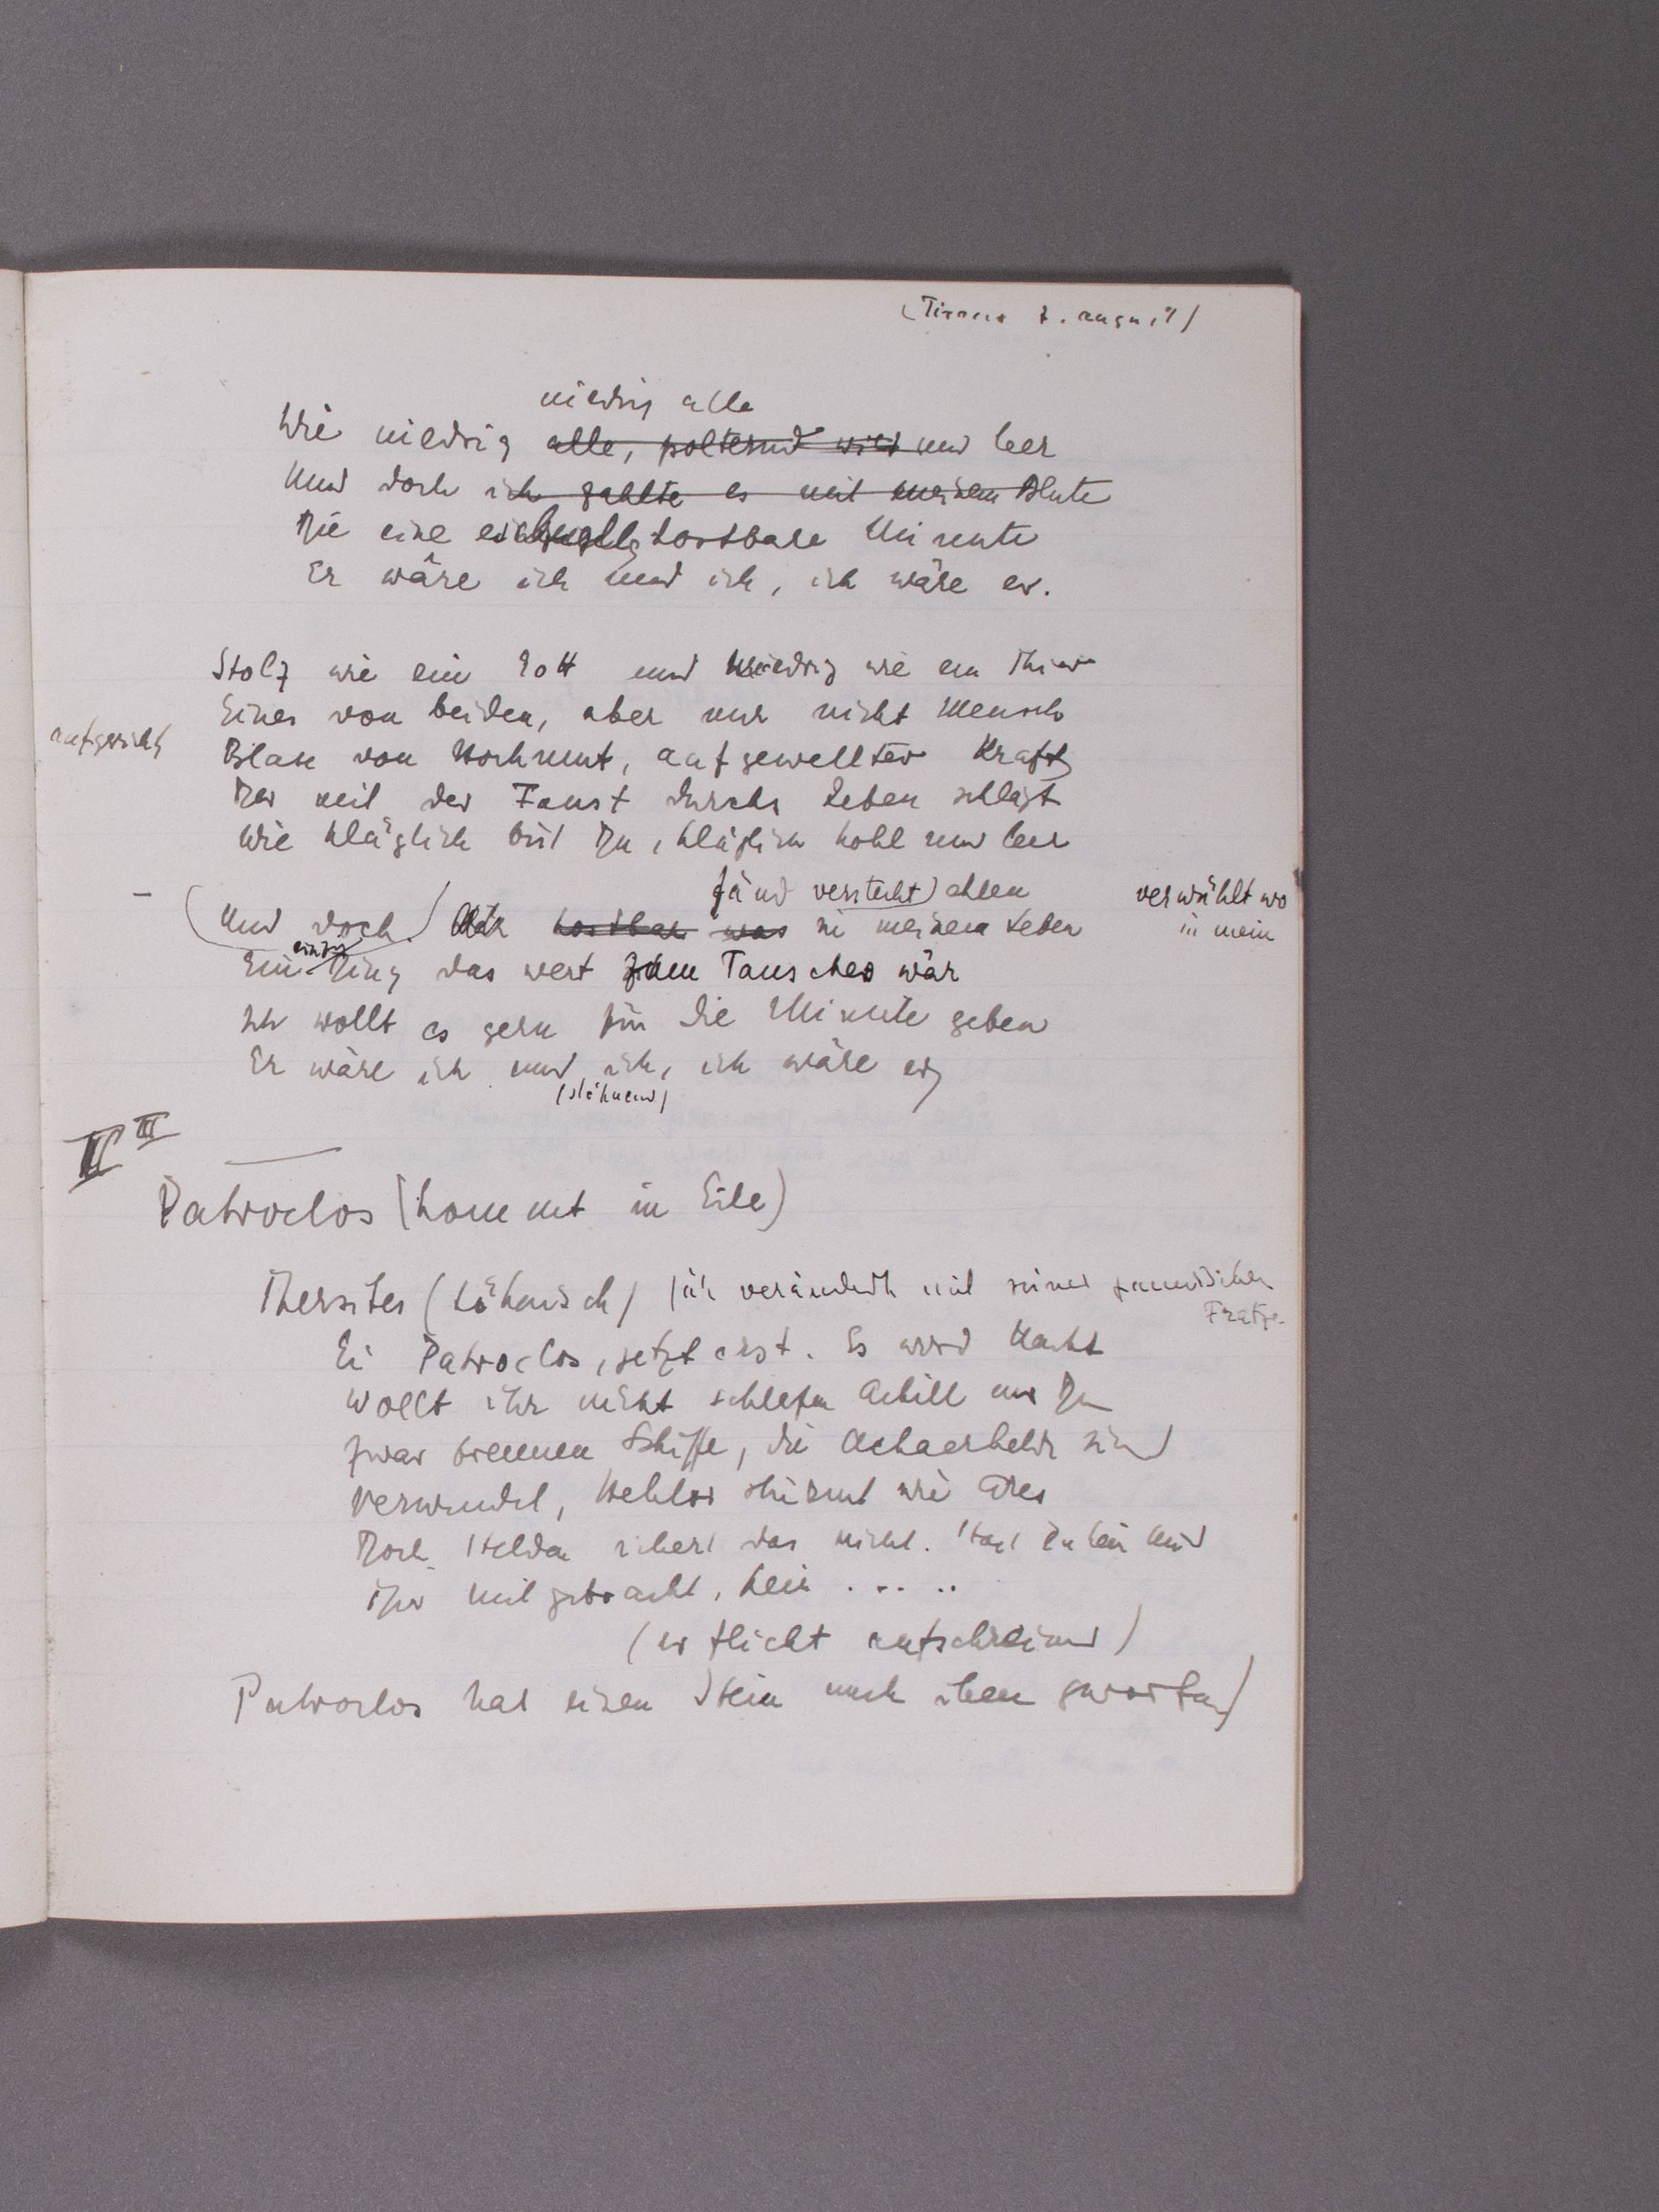 7. August)
niedrig alle
Wie niedrig alle, polternd wild und leer
Und doch ich zahlte es mit meinem Blute
Die eine kostbare Minute
Er wäre ich und ich, ich wäre er.
Stolz wie ein Gott und niedrig wie ein Thier
Eines von beiden, aber nur nicht Mensch
aufgereckt
Blau von Hochmut, aufgewellter Kraft
Der mit der Faust durchs Leben schlägt
Wie kläglich bist Du, kläglich hohl und leer
fänd versteckt) allem
verwühlt wo
(Und doch.) kostbar was in meinem Leben
in mein
einzig
Ein Ding das wert zum Tausche wär
Ich wollt es gern für die Minute geben
Er wäre ich und ich, ich wäre er
(stöhnend)
II III
Patroclos (kommt in Eile)
Thersites (höhnisch) verändert mit seiner
Fratze
Ei Patroclos, jetzt erst. Es wird Nacht
Wollt ihr nicht schlafen Achill und Du
Zwar brennen Schiffe, die Achaerhelden sind
Verwundet, Hektor stürmt wie Ares
Doch Helden schert das nicht. Hast Du kein Kind
Dir mitgebracht, kein . . . . .
(er flieht aufschreiend)
Patroclos hat einen Stein nach ihm geworfen)